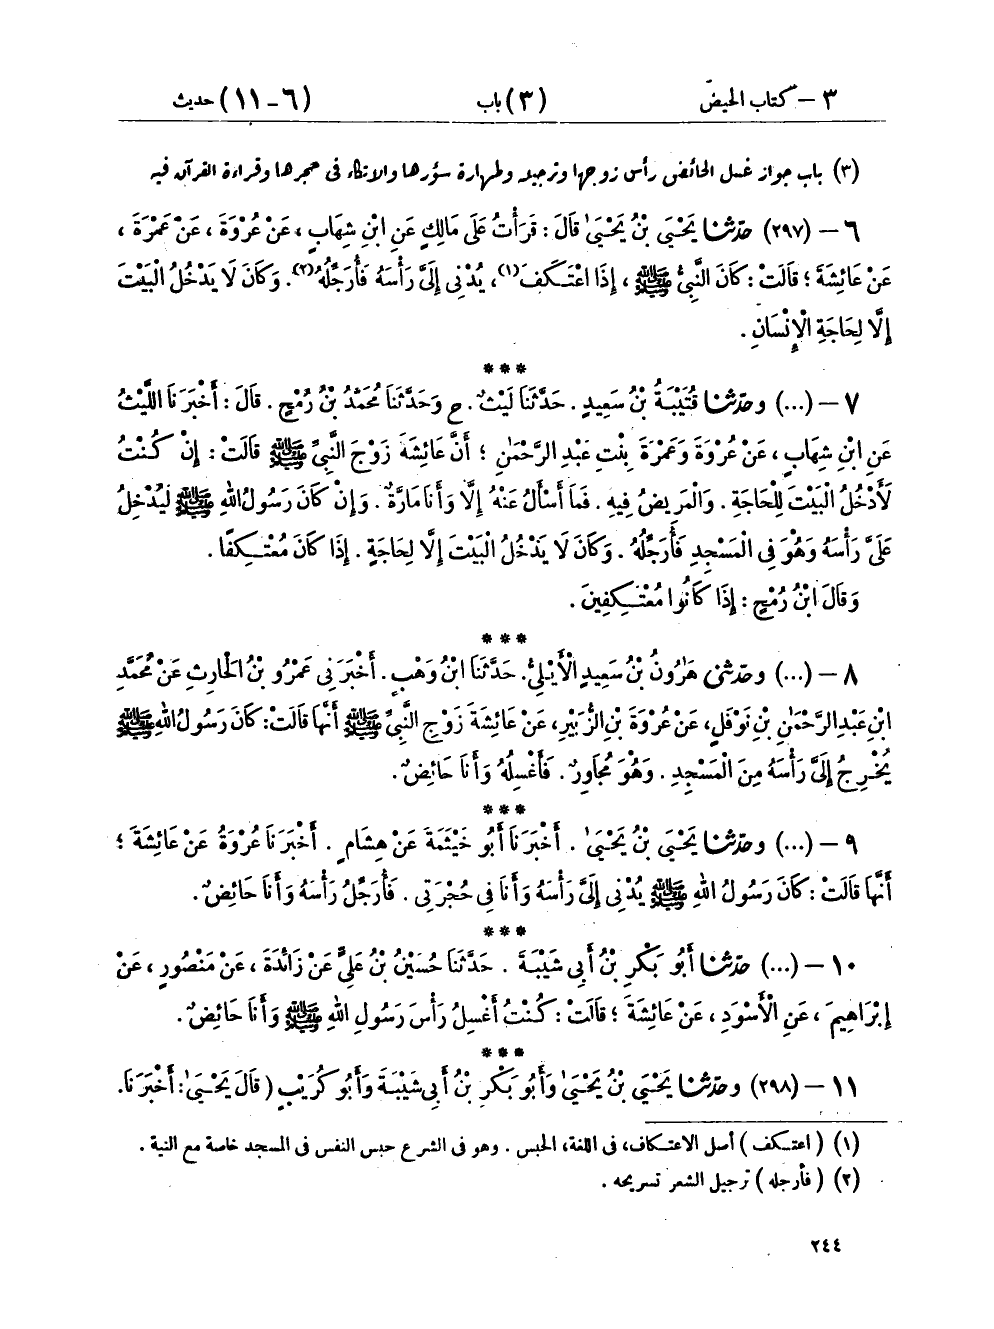 ٣ – كتاب الحيض (٣) باب (٦-١١) حديث
(٣) باب جواز غسل الحائض رأس زوجها وترجيله وطهارة سؤرها والاتكاء فى حجرها وقراءة القرآن فيه
٦ – (٢٩٧) حدّثنا يَحْيَىٰ بْنُ يَحْيَىٰ قَالَ : قَرَأْتُ عَلَى مَالِكٍ عَنِ ابْنِ شِهَابٍ ، عَنْ عُرْوَةَ ، عَنْ عَمْرَةَ ،
عَنْ عَائِشَةَ ؛ قَالَتْ : كَانَ النَّبِيُّ ﷺ ، إِذَا اعْتَكَفَ(١)، يُدْنِى إِلَىَّ رَأْسَهُ فَأُرَجِّلُهُ(٢). وَكَانَ لَا يَدْخُلُ الْبَيْتَ
إِلَّا لِحَاجَةِ الْإِنْسَانِ .
***
٧ – (...) وحدّثنا قُتَيْبَةُ بْنُ سَعِيدٍ . حَدَّثَنَا لَيْثٌ . ح وَحَدَّثَنَا مُحَمَّدُ بْنُ رُمْحٍ . قَالَ : أَخْبَرَنَا اللَّيْثُ
عَنِ ابْنِ شِهَابٍ ، عَنْ عُرْوَةَ وَعَمْرَةَ بِنْتِ عَبْدِ الرَّحْمَٰنِ ؛ أَنَّ عَائِشَةَ زَوْجَ النَّبِيِّ ﷺ قَالَتْ : إِنْ كُنْتُ
لَأَدْخُلُ الْبَيْتَ لِلْحَاجَةِ . وَالْمَرِيضُ فِيهِ . فَمَا أَسْأَلُ عَنْهُ إِلَّا وَأَنَا مَارَّةٌ . وَإِنْ كَانَ رَسُولُ اللهِ ﷺ لَيُدْخِلُ
عَلَىَّ رَأْسَهُ وَهُوَ فِى الْمَسْجِدِ فَأُرَجِّلُهُ . وَكَانَ لَا يَدْخُلُ الْبَيْتَ إِلَّا لِحَاجَةٍ . إِذَا كَانَ مُعْتَكِفًا .
وَقَالَ ابْنُ رُمْحٍ : إِذَا كَانُوا مُعْتَكِفِينَ .
***
٨ – (...) وحدّثنى هَٰرُونُ بْنُ سَعِيدٍ الْأَيْلِىُّ. حَدَّثَنَا ابْنُ وَهْبٍ . أَخْبَرَنِى عَمْرُو بْنُ الْحَارِثِ عَنْ مُحَمَّدِ
ابْنِ عَبْدِ الرَّحْمَٰنِ بْنِ نَوْفَلٍ، عَنْ عُرْوَةَ بْنِ الزُّبَيْرِ، عَنْ عَائِشَةَ زَوْجِ النَّبِيِّ ﷺ أَنَّهَا قَالَتْ: كَانَ رَسُولُ اللهِ ﷺ
يُخْرِجُ إِلَىَّ رَأْسَهُ مِنَ الْمَسْجِدِ . وَهُوَ مُجَاوِرٌ . فَأَغْسِلُهُ وَأَنَا حَائِضٌ .
***
٩ – (...) وحدّثنا يَحْيَىٰ بْنُ يَحْيَىٰ . أَخْبَرَنَا أَبُو خَيْثَمَةَ عَنْ هِشَامٍ . أَخْبَرَنَا عُرْوَةُ عَنْ عَائِشَةَ ؛
أَنَّهَا قَالَتْ : كَانَ رَسُولُ اللهِ ﷺ يُدْنِى إِلَىَّ رَأْسَهُ وَأَنَا فِى حُجْرَتِى . فَأُرَجِّلُ رَأْسَهُ وَأَنَا حَائِضٌ .
***
١٠ – (...) حدّثنا أَبُو بَكْرِ بْنُ أَبِى شَيْبَةَ . حَدَّثَنَا حُسَيْنُ بْنُ عَلِىٍّ عَنْ زَائِدَةَ ، عَنْ مَنْصُورٍ ، عَنْ
إِبْرَاهِيمَ ، عَنِ الْأَسْوَدِ ، عَنْ عَائِشَةَ ؛ قَالَتْ : كُنْتُ أَغْسِلُ رَأْسَ رَسُولِ اللهِ ﷺ وَأَنَا حَائِضٌ .
***
١١ – (٢٩٨) وحدّثنا يَحْيَىٰ بْنُ يَحْيَىٰ وَأَبُو بَكْرِ بْنُ أَبِى شَيْبَةَ وَأَبُو كُرَيْبٍ ( قَالَ يَحْيَىٰ : أَخْبَرَنَا.
(١) ( اعتكف ) أصل الاعتكاف، فى اللغة، الحبس . وهو فى الشرع حبس النفس فى المسجد خاصة مع النية .
(٢) ( فأرجله ) ترجيل الشعر تسريحه .
٢٤٤